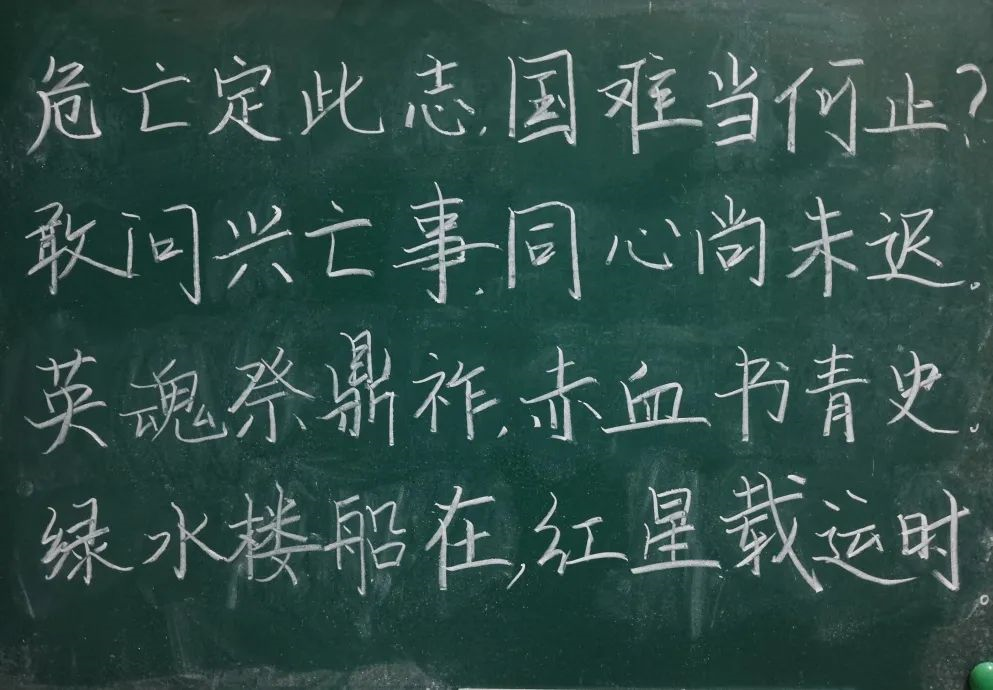 危亡定此志,国难当何止?
敢问兴亡事,同心尚未迟。
英魂祭鼎祚,赤血书青史。
绿水楼船在,红星载运时。